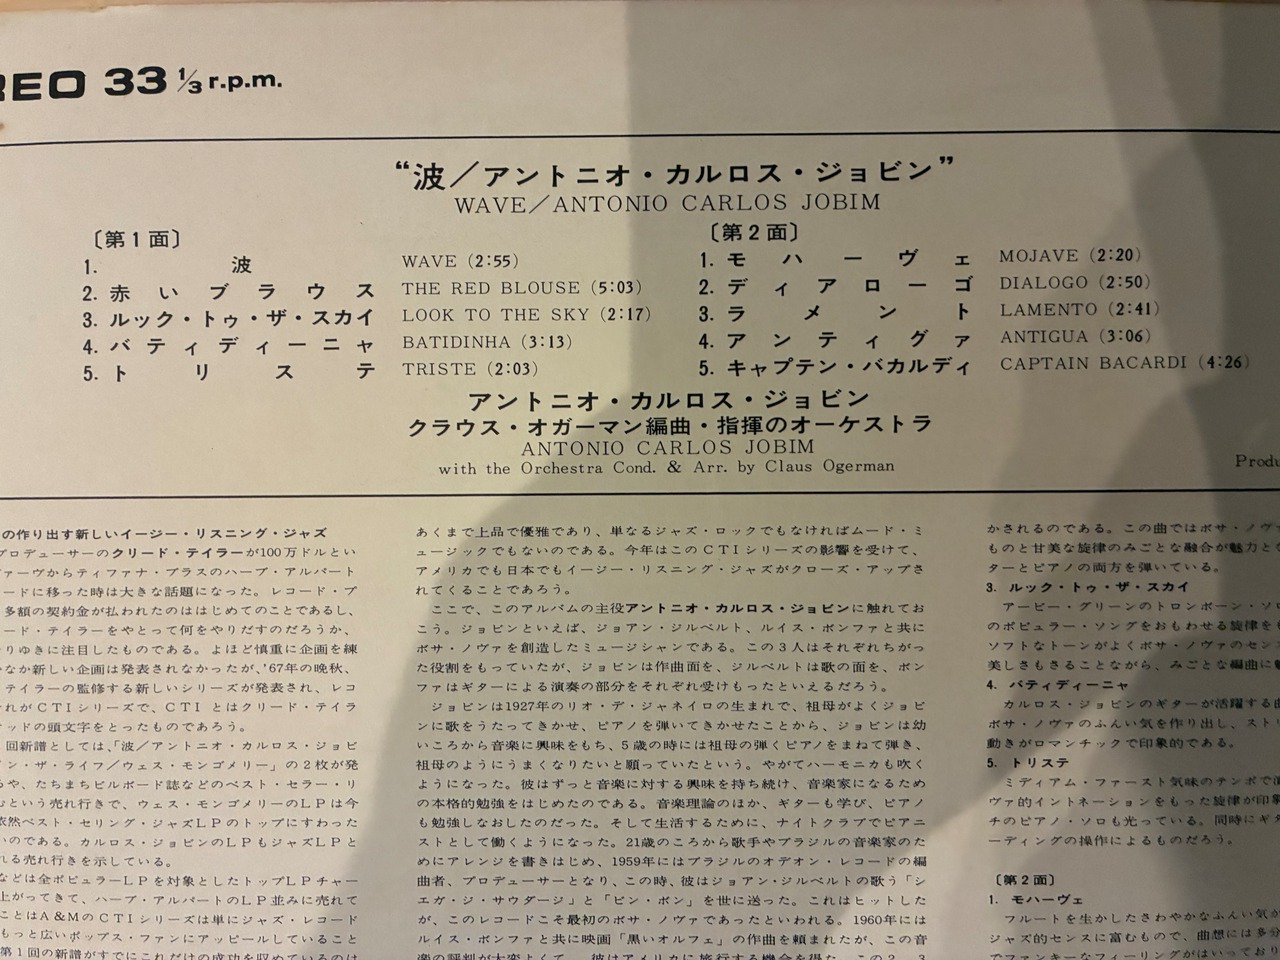 REO 33 1/3 r.p.m.
“波／アントニオ・カルロス・ジョビン”
WAVE／ANTONIO CARLOS JOBIM
〔第1面〕
1. 波 WAVE (2:55)
2. 赤いブラウス THE RED BLOUSE (5:03)
3. ルック・トゥ・ザ・スカイ LOOK TO THE SKY (2:17)
4. バティディーニャ BATIDINHA (3:13)
5. トリステ TRISTE (2:03)
〔第2面〕
1. モハーヴェ MOJAVE (2:20)
2. ディアローゴ DIALOGO (2:50)
3. ラメント LAMENTO (2:41)
4. アンティグァ ANTIGUA (3:06)
5. キャプテン・バカルディ CAPTAIN BACARDI (4:26)
アントニオ・カルロス・ジョビン
クラウス・オガーマン編曲・指揮のオーケストラ
ANTONIO CARLOS JOBIM
with the Orchestra Cond. & Arr. by Claus Ogerman
Produ
の作り出す新しいイージー・リスニング・ジャズ
プロデューサーのクリード・テイラーが100万ドルとい
ァーヴからティファナ・ブラスのハーブ・アルパート
ードに移った時は大きな話題になった。レコード・プ
多額の契約金が払われたのははじめてのことであるし、
ード・テイラーをやとって何をやりだすのだろうか、
りゆきに注目したものである。よほど慎重に企画を練
なか新しい企画は発表されなかったが、'67年の晩秋、
テイラーの監修する新しいシリーズが発表され、レコ
れがＣＴＩシリーズで、ＣＴＩ とはクリード・テイラ
ッドの頭文字をとったものであろう。
回新譜としては、「波／アントニオ・カルロス・ジョビ
ン・ザ・ライフ／ウェス・モンゴメリー」の２枚が発
や、たちまちビルボード誌などのベスト・セラー・リ
むという売れ行きで、ウェス・モンゴメリーのＬＰは今
依然ベスト・セリング・ジャズＬＰのトップにすわった
いのである。カルロス・ジョビンのＬＰもジャズＬＰと
れる売れ行きを示している。
などは全ポピュラーＬＰを対象としたトップＬＰチャー
上がってきて、ハーブ・アルパートのＬＰ並みに売れて
ことはＡ＆ＭのＣＴＩシリーズは単にジャズ・レコード
もっと広いポップス・ファンにアッピールしていること
第１回の新譜がすでにこれだけの成功を収めているのは
あくまで上品で優雅であり、単なるジャズ・ロックでもなければムード・ミ
ュージックでもないのである。今年はこのＣＴＩシリーズの影響を受けて、
アメリカでも日本でもイージー・リスニング・ジャズがクローズ・アップさ
れてくることであろう。
ここで、このアルバムの主役アントニオ・カルロス・ジョビンに触れてお
こう。ジョビンといえば、ジョアン・ジルベルト、ルイス・ボンファと共に
ボサ・ノヴァを創造したミュージシャンである。この３人はそれぞれちがっ
た役割をもっていたが、ジョビンは作曲面を、ジルベルトは歌の面を、ボン
ファはギターによる演奏の部分をそれぞれ受けもったといえるだろう。
ジョビンは1927年のリオ・デ・ジャネイロの生まれで、祖母がよくジョビ
ンに歌をうたってきかせ、ピアノを弾いてきかせたことから、ジョビンは幼
いころから音楽に興味をもち、５歳の時には祖母の弾くピアノをまねて弾き、
祖母のようにうまくなりたいと願っていたという。やがてハーモニカも吹く
ようになった。彼はずっと音楽に対する興味を持ち続け、音楽家になるため
の本格的勉強をはじめたのである。音楽理論のほか、ギターも学び、ピアノ
も勉強しなおしたのだった。そして生活するために、ナイトクラブでピアニ
ストとして働くようになった。21歳のころから歌手やブラジルの音楽家のた
めにアレンジを書きはじめ、1959年にはブラジルのオデオン・レコードの編
曲者、プロデューサーとなり、この時、彼はジョアン・ジルベルトの歌う「シ
エガ・ジ・サウダージ」と「ビン・ボン」を世に送った。これはヒットした
が、このレコードこそ最初のボサ・ノヴァであったといわれる。1960年には
ルイス・ボンファと共に映画「黒いオルフェ」の作曲を頼まれたが、この音
楽の評判が大変よくて、彼はアメリカに旅行する機会を得た。この２、３
かされるのである。この曲ではボサ・ノヴァ
ものと甘美な旋律のみごとな融合が魅力と
ターとピアノの両方を弾いている。
3. ルック・トゥ・ザ・スカイ
アービー・グリーンのトロンボーン・ソロ
のポピュラー・ソングをおもわせる旋律を
ソフトなトーンがよくボサ・ノヴァのセン
美しさもさることながら、みごとな編曲に
4. バティディーニャ
カルロス・ジョビンのギターが活躍する
ボサ・ノヴァのふんい気を作り出し、スト
動きがロマンチックで印象的である。
5. トリステ
ミディアム・ファースト気味のテンポで
ヴァ的イントネーションをもった旋律が印象
チのピアノ・ソロも光っている。同時にギタ
ーディングの操作によるものだろう。
〔第２面〕
1. モハーヴェ
フルートを生かしたさわやかなふんい気が
ジャズ的センスに富むもので、曲想には多分
でファンキーなフィーリングがはいっており